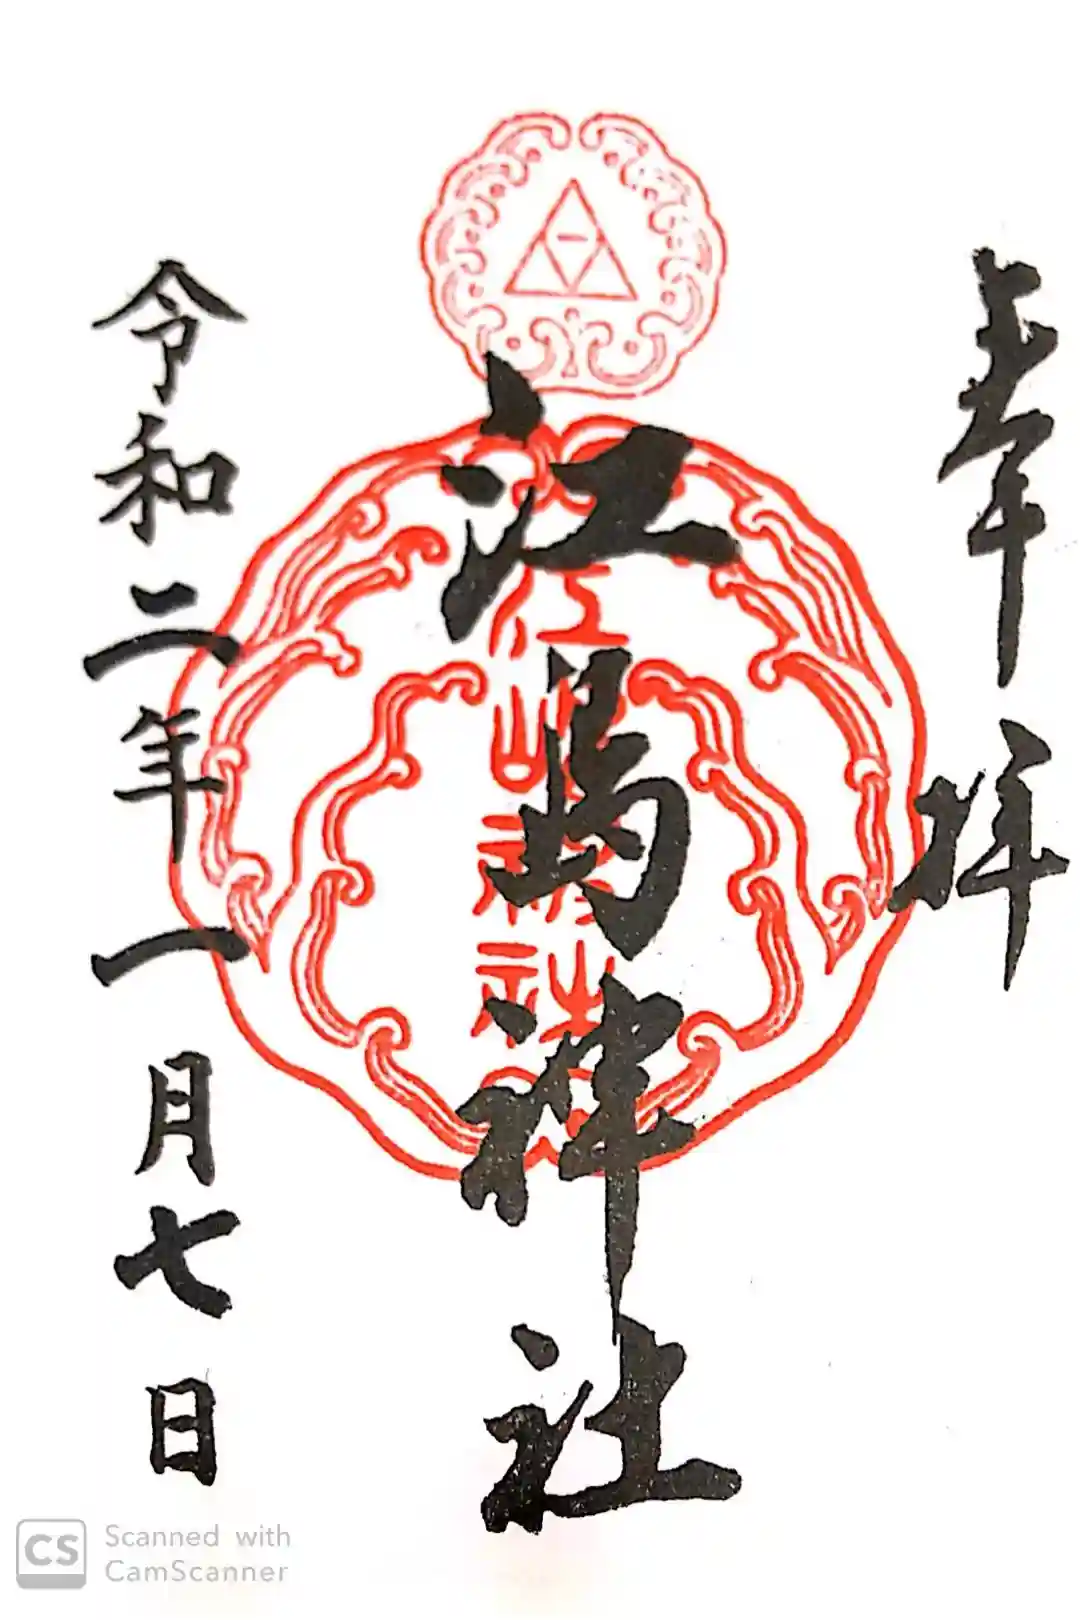 奉拝
江島神社
江島神社
令和二年一月七日
CS Scanned with
CamScanner